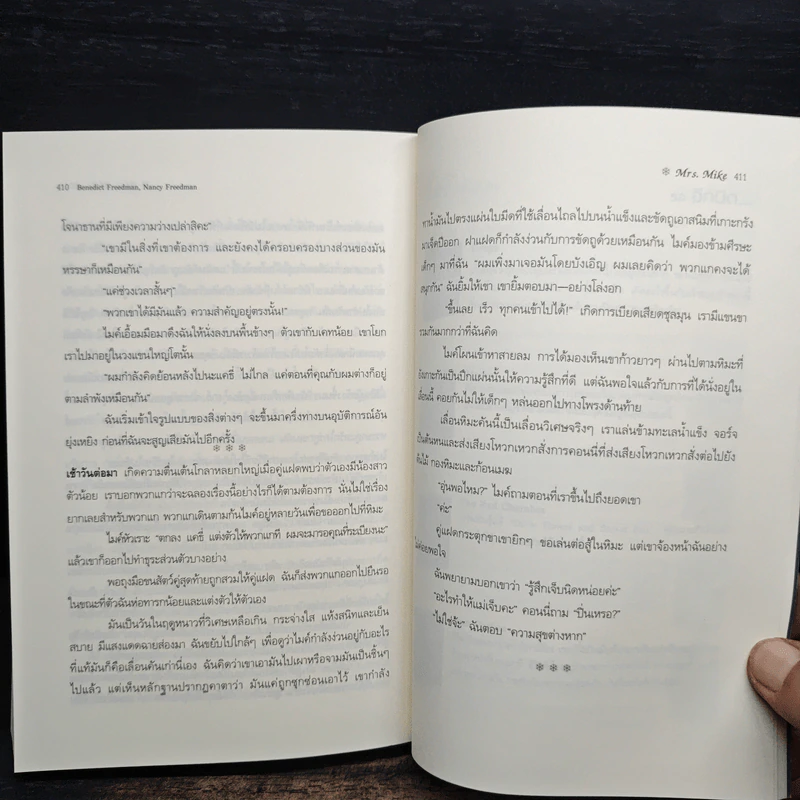 410 Benedict Freedman, Nancy Freedman
โจนาธานที่มีเพียงความว่างเปล่าสิคะ"
"เขามีในสิ่งที่เขาต้องการ และยังคงได้ครอบครองบางส่วนของมัน
หรรษาก็เหมือนกัน"
"แค่ช่วงเวลาสั้นๆ"
"พวกเขาได้มีมันแล้ว ความสำคัญอยู่ตรงนั้น!"
ไมค์เอื้อมมือมาดึงฉันให้นั่งลงบนพื้นข้างๆ ตัวเขากับเคทน้อย เขาโยก
เราไปมาอยู่ในวงแขนใหญ่โตนั้น
"ผมกำลังคิดย้อนหลังไปนะแคธี่ ไม่ไกล แค่ตอนที่คุณกับผมต่างก็อยู่
ตามลำพังเหมือนกัน"
ฉันเริ่มเข้าใจรูปแบบของสิ่งต่างๆ จะขึ้นมาครึ่งทางบนอุบัติการณ์อัน
ยุ่งเหยิง ก่อนที่ฉันจะสูญเสียมันไปอีกครั้ง
เช้าวันต่อมา เกิดความตื่นเต้นโกลาหลยกใหญ่เมื่อคู่แฝดพบว่าตัวเองมีน้องสาว
ตัวน้อย เราบอกพวกแกว่าจะฉลองเรื่องนี้อย่างไรก็ได้ตามต้องการ นั่นไม่ใช่เรื่อง
ยากเลยสำหรับพวกแก พวกแกเดินตามก้นไมค์อยู่หลายวันเพื่อขอออกไปที่หิมะ
ไมค์หัวเราะ "ตกลง แคธี่ แต่งตัวให้พวกแกที ผมจะมารอคุณที่ระเบียงนะ"
แล้วเขาก็ออกไปทำธุระส่วนตัวบางอย่าง
พอถุงมือขนสัตว์คู่สุดท้ายถูกสวมให้คู่แฝด ฉันก็ส่งพวกแกออกไปยืนรอ
ในขณะที่ตัวฉันห่อทารกน้อยและแต่งตัวให้ตัวเอง
มันเป็นวันในฤดูหนาวที่วิเศษเหลือเกิน กระจ่างใส แห้งสนิทและเย็น
สบาย มีแสงแดดฉายส่องมา ฉันขยับไปใกล้ๆ เพื่อดูว่าไมค์กำลังง่วนอยู่กับอะไร
ที่แท้มันก็คือเลื่อนคันเก่านี่เอง ฉันคิดว่าเขาเอามันไปเผาหรือจามมันเป็นชิ้นๆ
ไปแล้ว แต่เห็นหลักฐานปรากฏคาตาว่า มันแค่ถูกซุกซ่อนเอาไว้ เขากำลัง
Mrs. Mike 411
ทาน้ำมันไปตรงแผ่นใบมีดที่ใช้เลื่อนไถลไปบนน้ำแข็งและขัดถูเอาสนิมที่เกาะกรัง
มาเจ็ดปีออก ฝาแฝดก็กำลังง่วนกับการขัดถูด้วยเหมือนกัน ไมค์มองข้ามศีรษะ
เด็กๆ มาที่ฉัน "ผมเพิ่งมาเจอมันโดยบังเอิญ ผมเลยคิดว่า พวกแกคงจะได้
สนุกกัน" ฉันยิ้มให้เขา เขายิ้มตอบมา—อย่างโล่งอก
"ขึ้นเลย เร็ว ทุกคนเข้าไปได้!" เกิดการเบียดเสียดชุลมุน เรามีแขนขา
รวมกันมากกว่าที่ฉันคิด
ไมค์โผนเข้าหาสายลม การได้มองเห็นเขาก้าวยาวๆ ผ่านไปตามหิมะที่
ยังเกาะกันเป็นปึกแผ่นนั้นให้ความรู้สึกที่ดี แต่ฉันพอใจแล้วกับการที่ได้นั่งอยู่ใน
เลื่อนนี้ คอยกันไม่ให้เด็กๆ หล่นออกไปทางโพรงด้านท้าย
เลื่อนหิมะคันนี้เป็นเลื่อนวิเศษจริงๆ เราแล่นข้ามทะเลน้ำแข็ง จอร์จ
เป็นต้นหนและส่งเสียงโหวกเหวกสั่งการคอนนี่ที่ส่งเสียงโหวกเหวกสั่งต่อไปยัง
ต้นไม้ กองหิมะและก้อนเมฆ
"อุ่นพอไหม?" ไมค์ถามตอนที่เราขึ้นไปถึงยอดเขา
"ค่ะ"
คู่แฝดกระตุกขาเขายิกๆ ขอเล่นต่อสู้ในหิมะ แต่เขาจ้องหน้าฉันอย่าง
ไม่ค่อยพอใจ
ฉันพยายามบอกเขาว่า "รู้สึกเจ็บนิดหน่อยค่ะ"
"อะไรทำให้แม่เจ็บคะ" คอนนี่ถาม "ปิ่นเหรอ?"
"ไม่ใช่จ้ะ" ฉันตอบ "ความสุขต่างหาก"